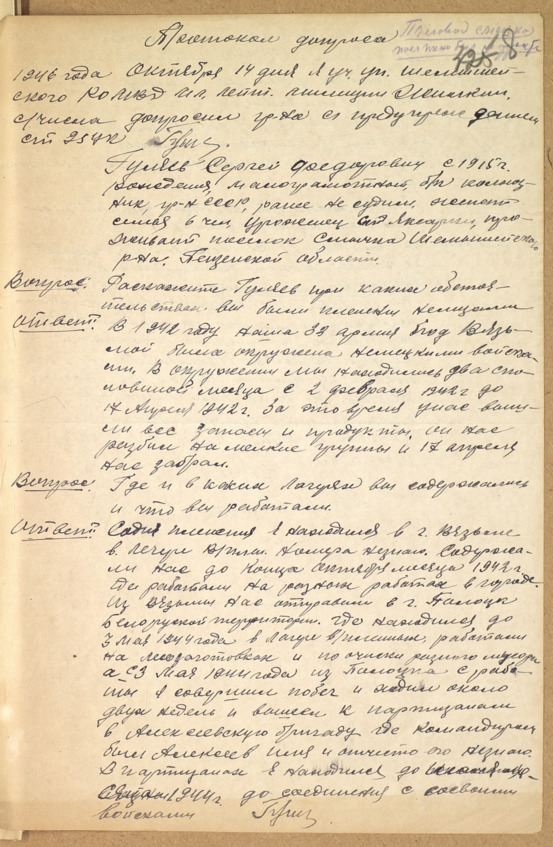 Протокол допроса
1946 года Октября 14 дня Я уч. уп. Шемышей-
ского РОМВД мл. лейт. милиции
с/числа допросил гр-на с предупрежденнием
ст 95 УК
Гуляев Сергей Федорович с 1915 г.
рождения, малограмотный, б/п колхоз-
ник, гр-н СССР, ранее не судим, женат
семья 2 чел, уроженец проживает поселок Шемышейского
р-на, Пензенской области.
Вопрос: Расскажите Гуляев при каких обстоя-
тельствах вы были пленены немцами
Ответ: В 1942 году наша 33 армия под Вязь-
мой была окружена немецкими войска-
ми. В окружении мы находились два с по-
ловиной месяца с 2 февраля 1942 г до
17 Апреля 1942 г. За это время у нас выш-
ли все запасы и продукты, он нас
разбил на мелкие группы и 17 апреля
нас забрал.
Вопрос: Где и в каких лагерях вы содержались
и что вы работали.
Ответ Со дня пленения я находился в г. Вязьме
в лагере в/плен. Номера незнаю. Содержа-
ли нас до конца октября месяца 1942 г
где работали на разных работах в городе.
Из Вязьмы нас отправили в г. Полоцк
Белорусской территории. где находился до
3 мая 1944 года в лагере в/пленных, работали
на лесозаготовках и по очистки разного мусора
а с 3 мая 1944 года из Полоцка с рабо-
ты я совершил побег и ходили около
двух недель и вышел к партизанам
в Алексеевскую бригаду где командиром
был Алексеев имя и отчество его незнаю.
В партизанах я находился до
1944 г. до соединения с своими
войсками